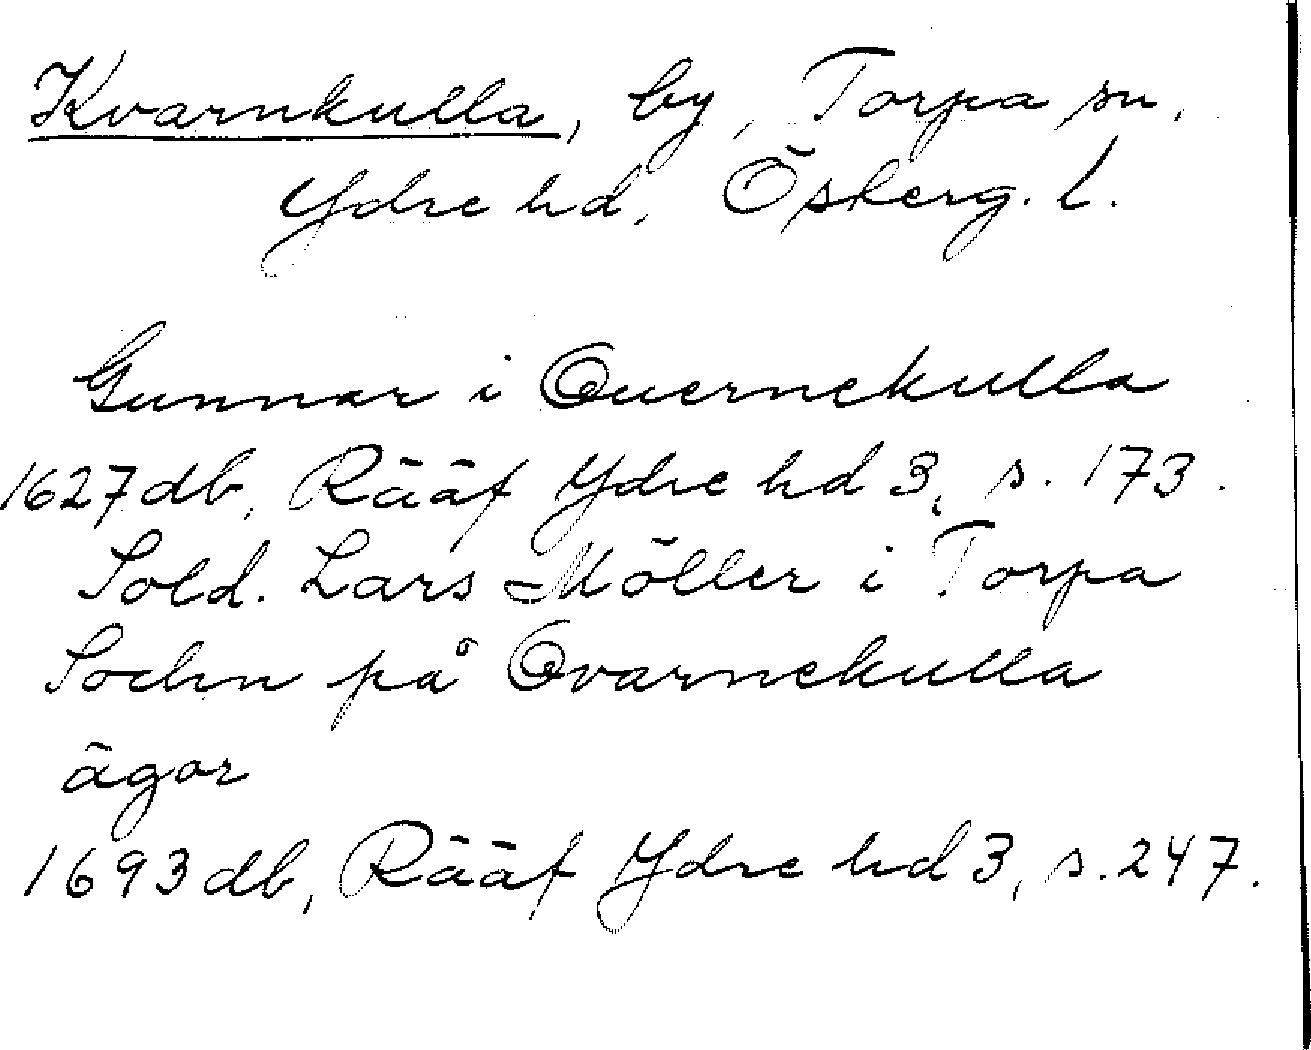 Kvarnkulla, by, Torpa sn,
Ydre hd, Österg. l.
Gunnar i Quernekulla
1627 db, Rääf Ydre hd 3, s. 173.
Sold. Lars Möller i Torpa
Sochn på Qvarnekulla
ägor
1693 db, Rääf Ydre hd 3, s. 247.